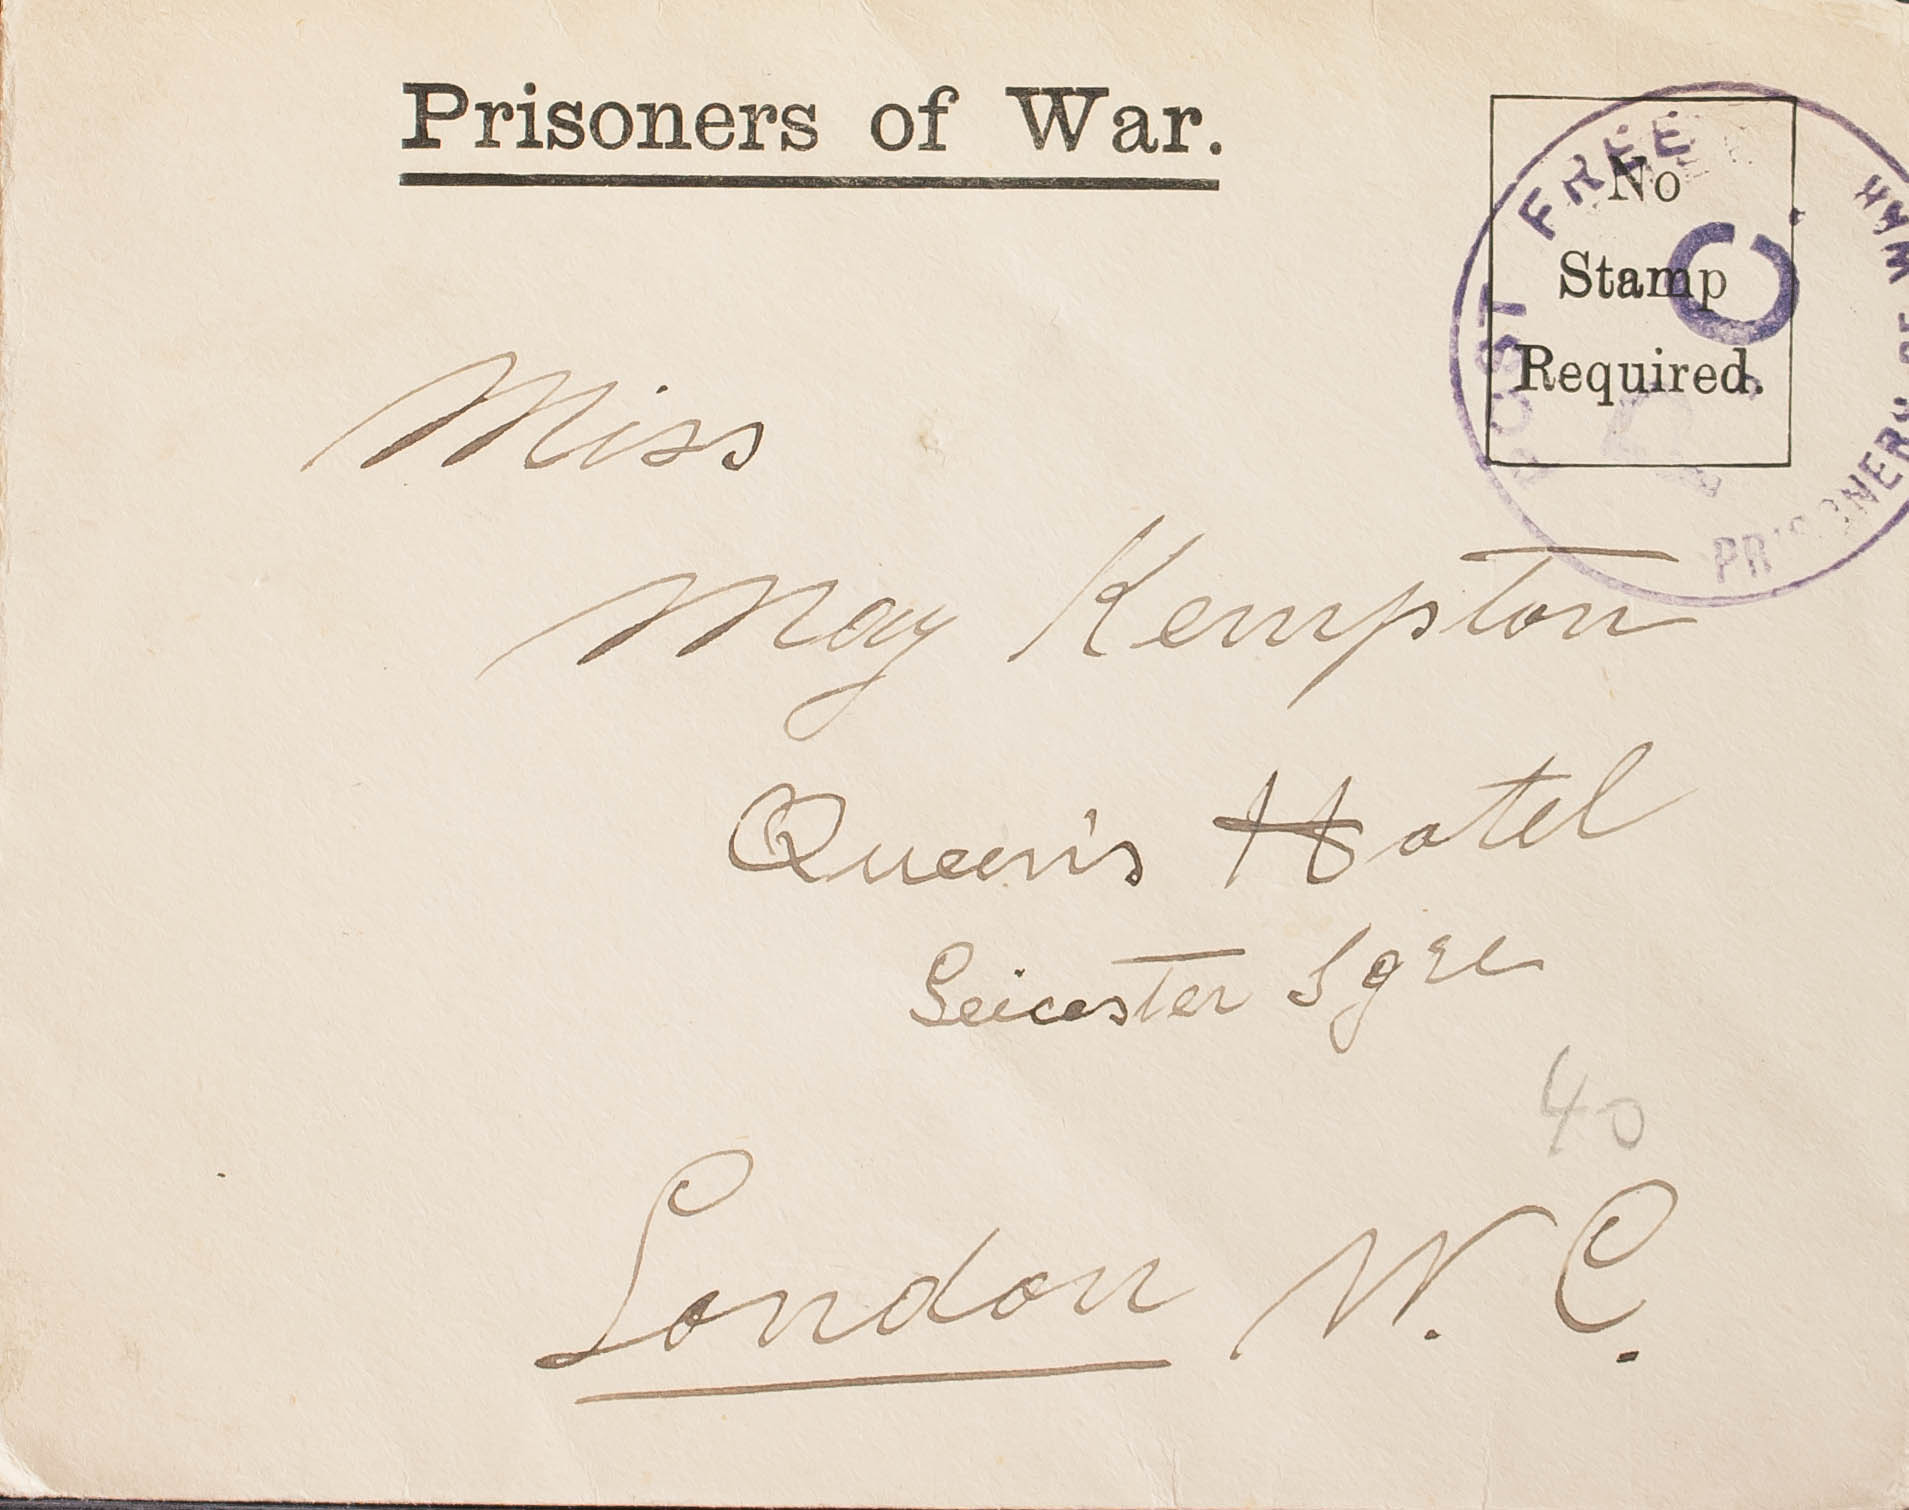 Prisoners of War.
No
Stamp
Required.
POST FREE
PRISONERS OF WAR
P. C.
Miss
May Kempton
Queen's Hotel
Leicester Sqre
40
London W. C.